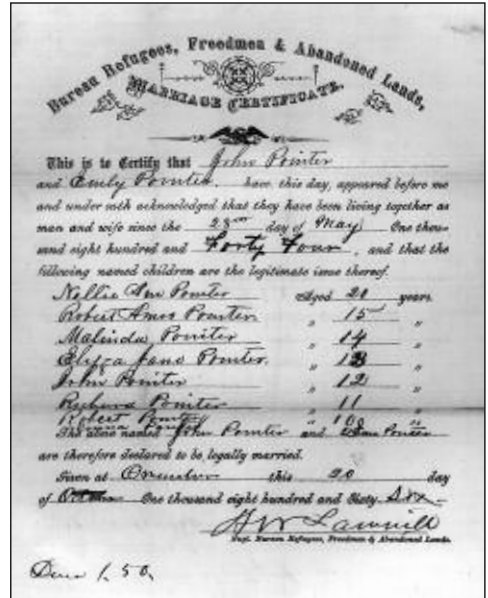 Bureau Refugees, Freedmen & Abandoned Lands,
MARRIAGE CERTIFICATE.
This is to Certify that John Pointer
and Emily Pointer have this day, appeared before me
and under oath acknowledged that they have been living together as
man and wife since the 23rd day of May One thou-
sand eight hundred and Forty Four, and that the
following named children are the legitimate issue thereof.
Nellie Ann Pointer Aged 21 years.
Robert Amos Pointer " 15 "
Malinda Pointer " 14 "
Elyza Jane Pointer " 13 "
John Pointer " 12 "
Pointer " 11 "
Robert Pointer " 10 "
The above named John Pointer and Pointer
are therefore declared to be legally married.
Given at this 20 day
of One thousand eight hundred and Sixty Six
Supt. Bureau Refugees, Freedmen & Abandoned Lands.
1.50.